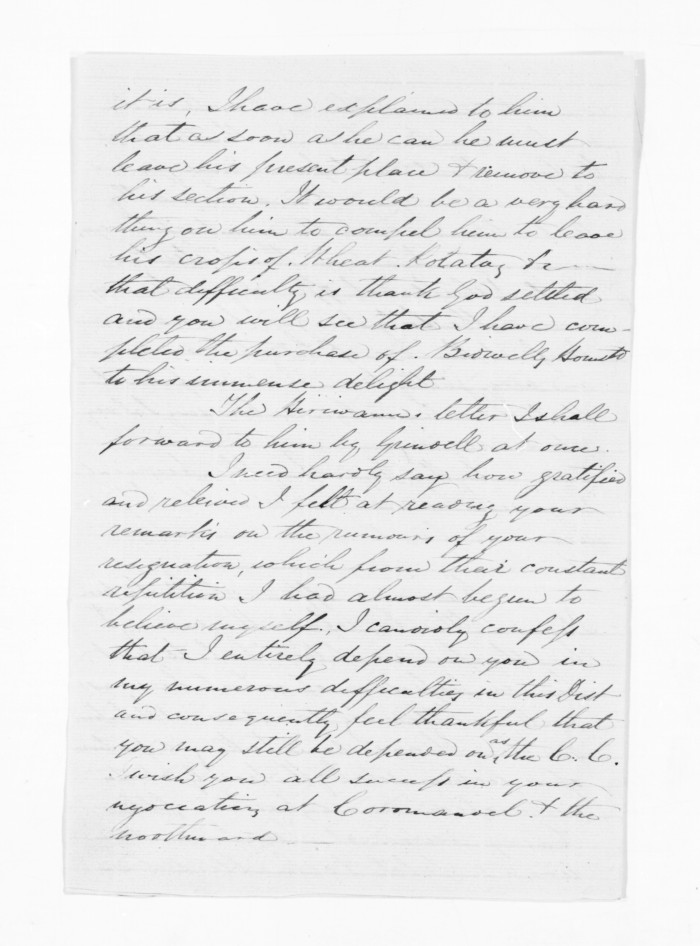 it is, I have explained to him
that as soon as he can he must
leave his present place & remove to
his section. It would be a very hard
thing on him to compel him to leave
his crops of. Wheat. Potatoes &c ——
that difficulty is thank God settled
and you will see that I have com-
pleted the purchase of. Bidwells Homestd
to his immense delight
The Hiriwanu's letter I shall
forward to him by Grindell at once.
I need hardly say how gratified
and relieved I felt at reading your
remarks on the rumours of your
resignation, which from their constant
repitition I had almost begun to
believe myself. I candidly confess
that I entirely depend on you in
my numerous difficulties in this Dist
and consequently feel thankful that
you may still be depended on as the C. C.
I wish you all success in your
negociations at Coromandel. & the
northward